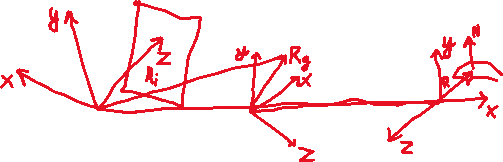 y
x
z
Ri
y
Rg
x
z
y
N
R
x
z